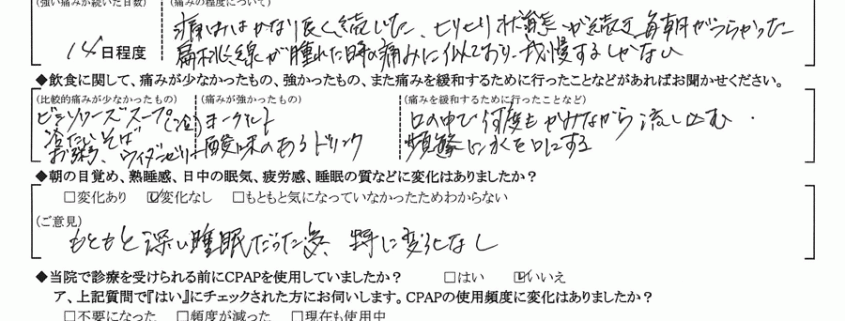 (強い痛みが続いた日数) (痛みの程度について)
14日程度
痛みはかなり長く続いた、ヒリヒリ状態が続き毎朝がつらかった
扁桃線が腫れた時の痛みに似ており、我慢するしかない
◆飲食に関して、痛みが少なかったもの、強かったもの、また痛みを緩和するために行ったことなどがあればお聞かせください。
(比較的痛みが少なかったもの) (痛みが強かったもの) (痛みを緩和するために行ったことなど)
スープ(冷) ヨーグルト 口の中で何度もかみながら流し込む.
冷たいそば
お粥、ウイダーゼリー 酸味のあるドリンク 頻繁に水を口にする
◆朝の目覚め、熟睡感、日中の眠気、疲労感、睡眠の質などに変化はありましたか?
□変化あり ☑変化なし □もともと気になっていなかったためわからない
(ご意見)
もともと深い睡眠だった為、特に変化なし
◆当院で診療を受けられる前にCPAPを使用していましたか? □はい ☑いいえ
ア、上記質問で『はい』にチェックされた方にお伺いします。CPAPの使用頻度に変化はありましたか?
□不要になった □頻度が減った □現在も使用中